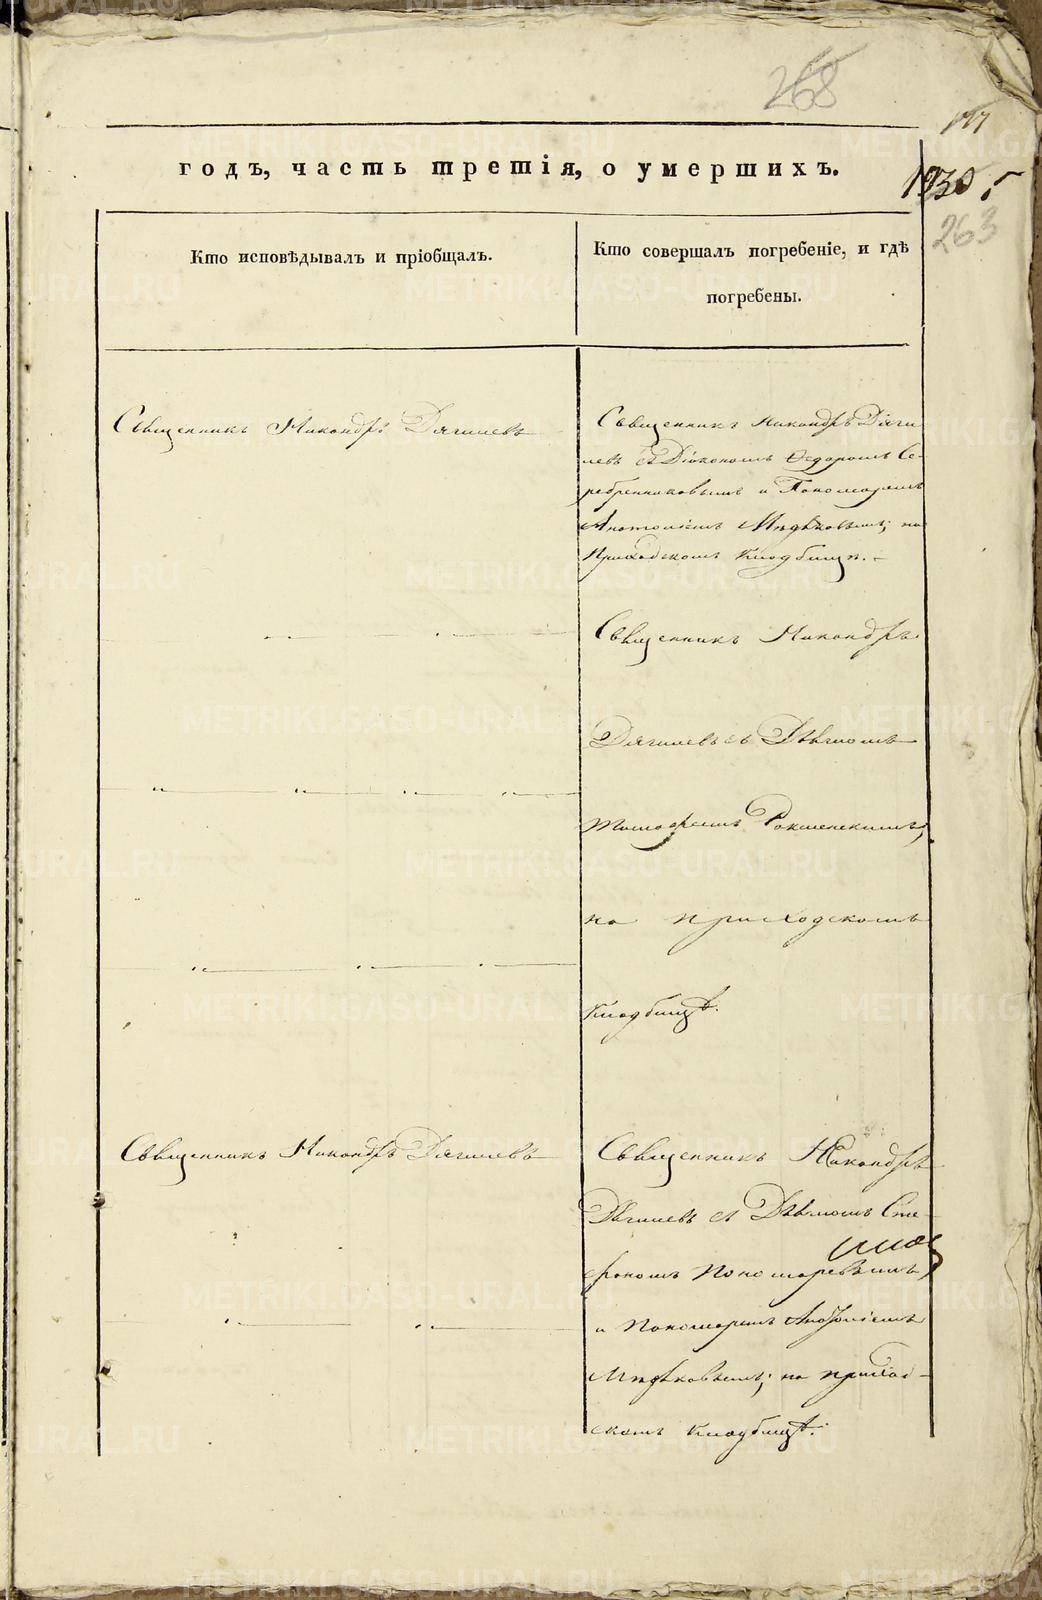 268
годъ, часть третія, о умершихъ.
263
Кто исповѣдывалъ и пріобщалъ.
Кто совершалъ погребеніе, и гдѣ
погребены.
Священникъ Никандръ Дягилевъ
Священникъ Никандръ Дяги
левъ съ Діакономъ Ѳедоромъ Се-
ребренниковымъ и Пономаремъ
Анатоліемъ на
Приходскомъ кладбищѣ.-
Священникъ Никандръ
Дягилевъ съ Дьячкомъ
на приходскомъ
кладбищѣ.
Священникъ Никандръ Дягилевъ
Священникъ Никандръ
Дягилевъ съ Дьячкомъ Сте-
фаномъ Пономаревымъ,
и Пономаремъ Анатоліемъ
на приход-
скомъ кладбищѣ.
METRIKI.GASO-URAL.RU